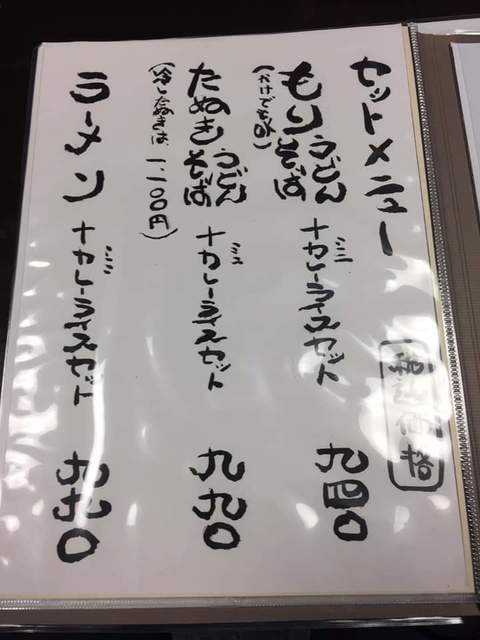 セットメニュー
税込価格
もりうどんそば+ミニカレーライスセット 九四〇
(かけでもOK)
たぬきうどんそば+ミニカレーライスセット 九九〇
(冷したぬきは、一、一〇〇円)
ラーメン+ミニカレーライスセット 九九〇